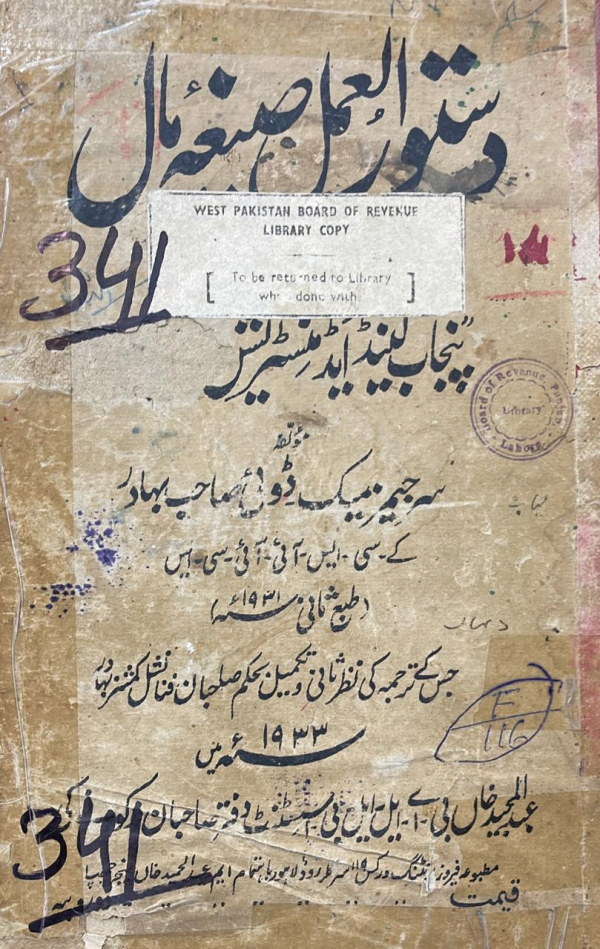 دستور العمل صیغہ مال
WEST PAKISTAN BOARD OF REVENUE
LIBRARY COPY
[ To be returned to Library
when done with. ]
341
۱۸
"پنجاب لینڈ ایڈمنسٹریشن"
Board of Revenue, Punjab
Library
Lahore
مؤلفہ
سر جیمز میک ڈوئی صاحب بہادر
کے-سی-ایس-آئی-آئی-سی-ایس
(طبع ثانی ۱۹۳۱ء)
جس کے ترجمہ کی نظر ثانی و تکمیل بحکم صاحبان فنانشل کمشنر بہادر
۱۹۳۳ء میں
F
116
عبدالمجید خاں بی-اے-ایل ایل-بی-اسسٹنٹ دفتر صاحبان
341
مطبوعہ فیروز پرنٹنگ ورکس ۱۱۹ سرکلر روڈ لاہور باہتمام ایم عبدالحمید خاں
قیمت